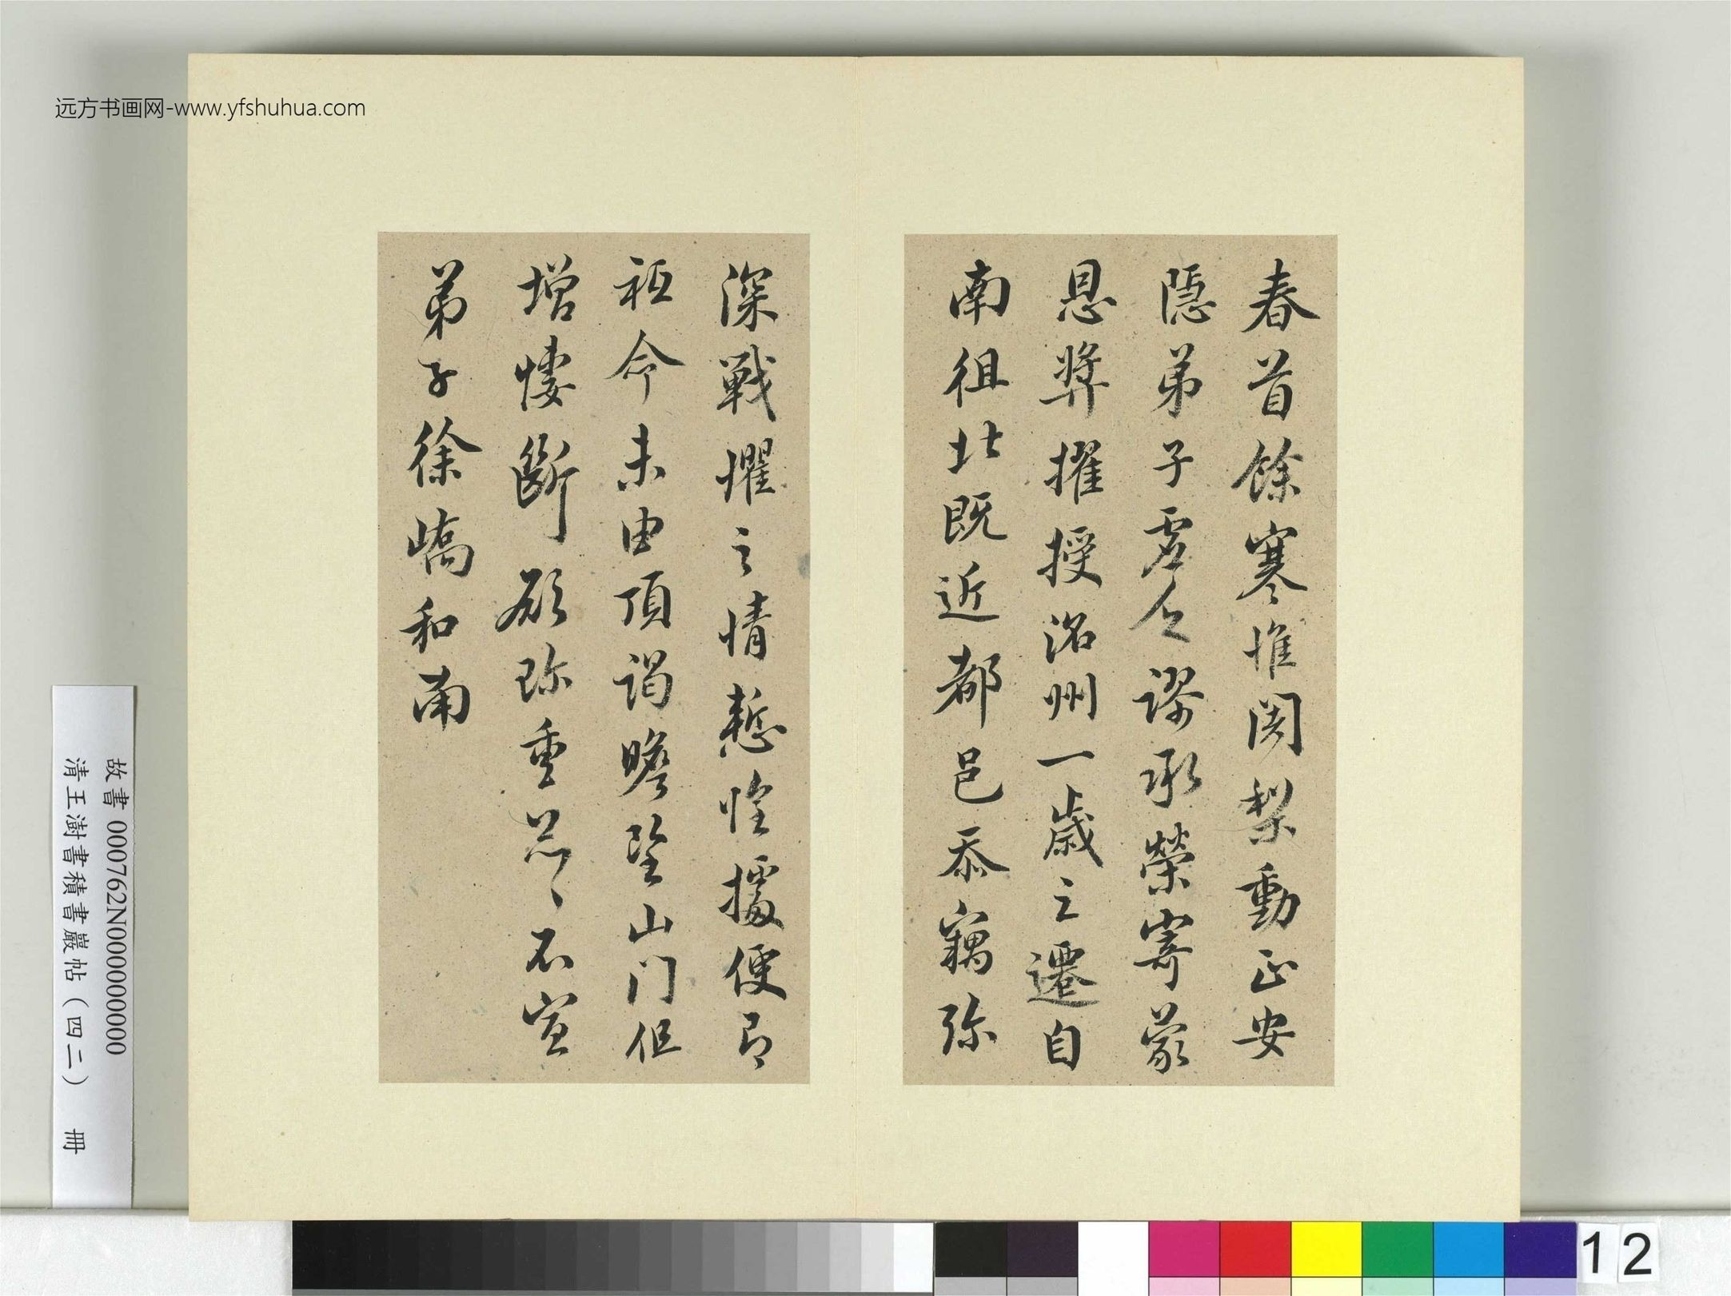 远方书画网-www.yfshuhua.com
春首餘寒惟闍梨動止安
隱弟子虛乏謬承榮寄蒙
恩獎擢授洺州一歲之遷自
南徂北既近都邑忝竊弥
深戰懼之情慙惶據便即
祗命未由頂謁瞻望山门但
增悽斷願珎重怱〻不宣
弟子徐嶠和南
故書 000762N000000000
清王澍書積書巖帖（四二） 冊
12